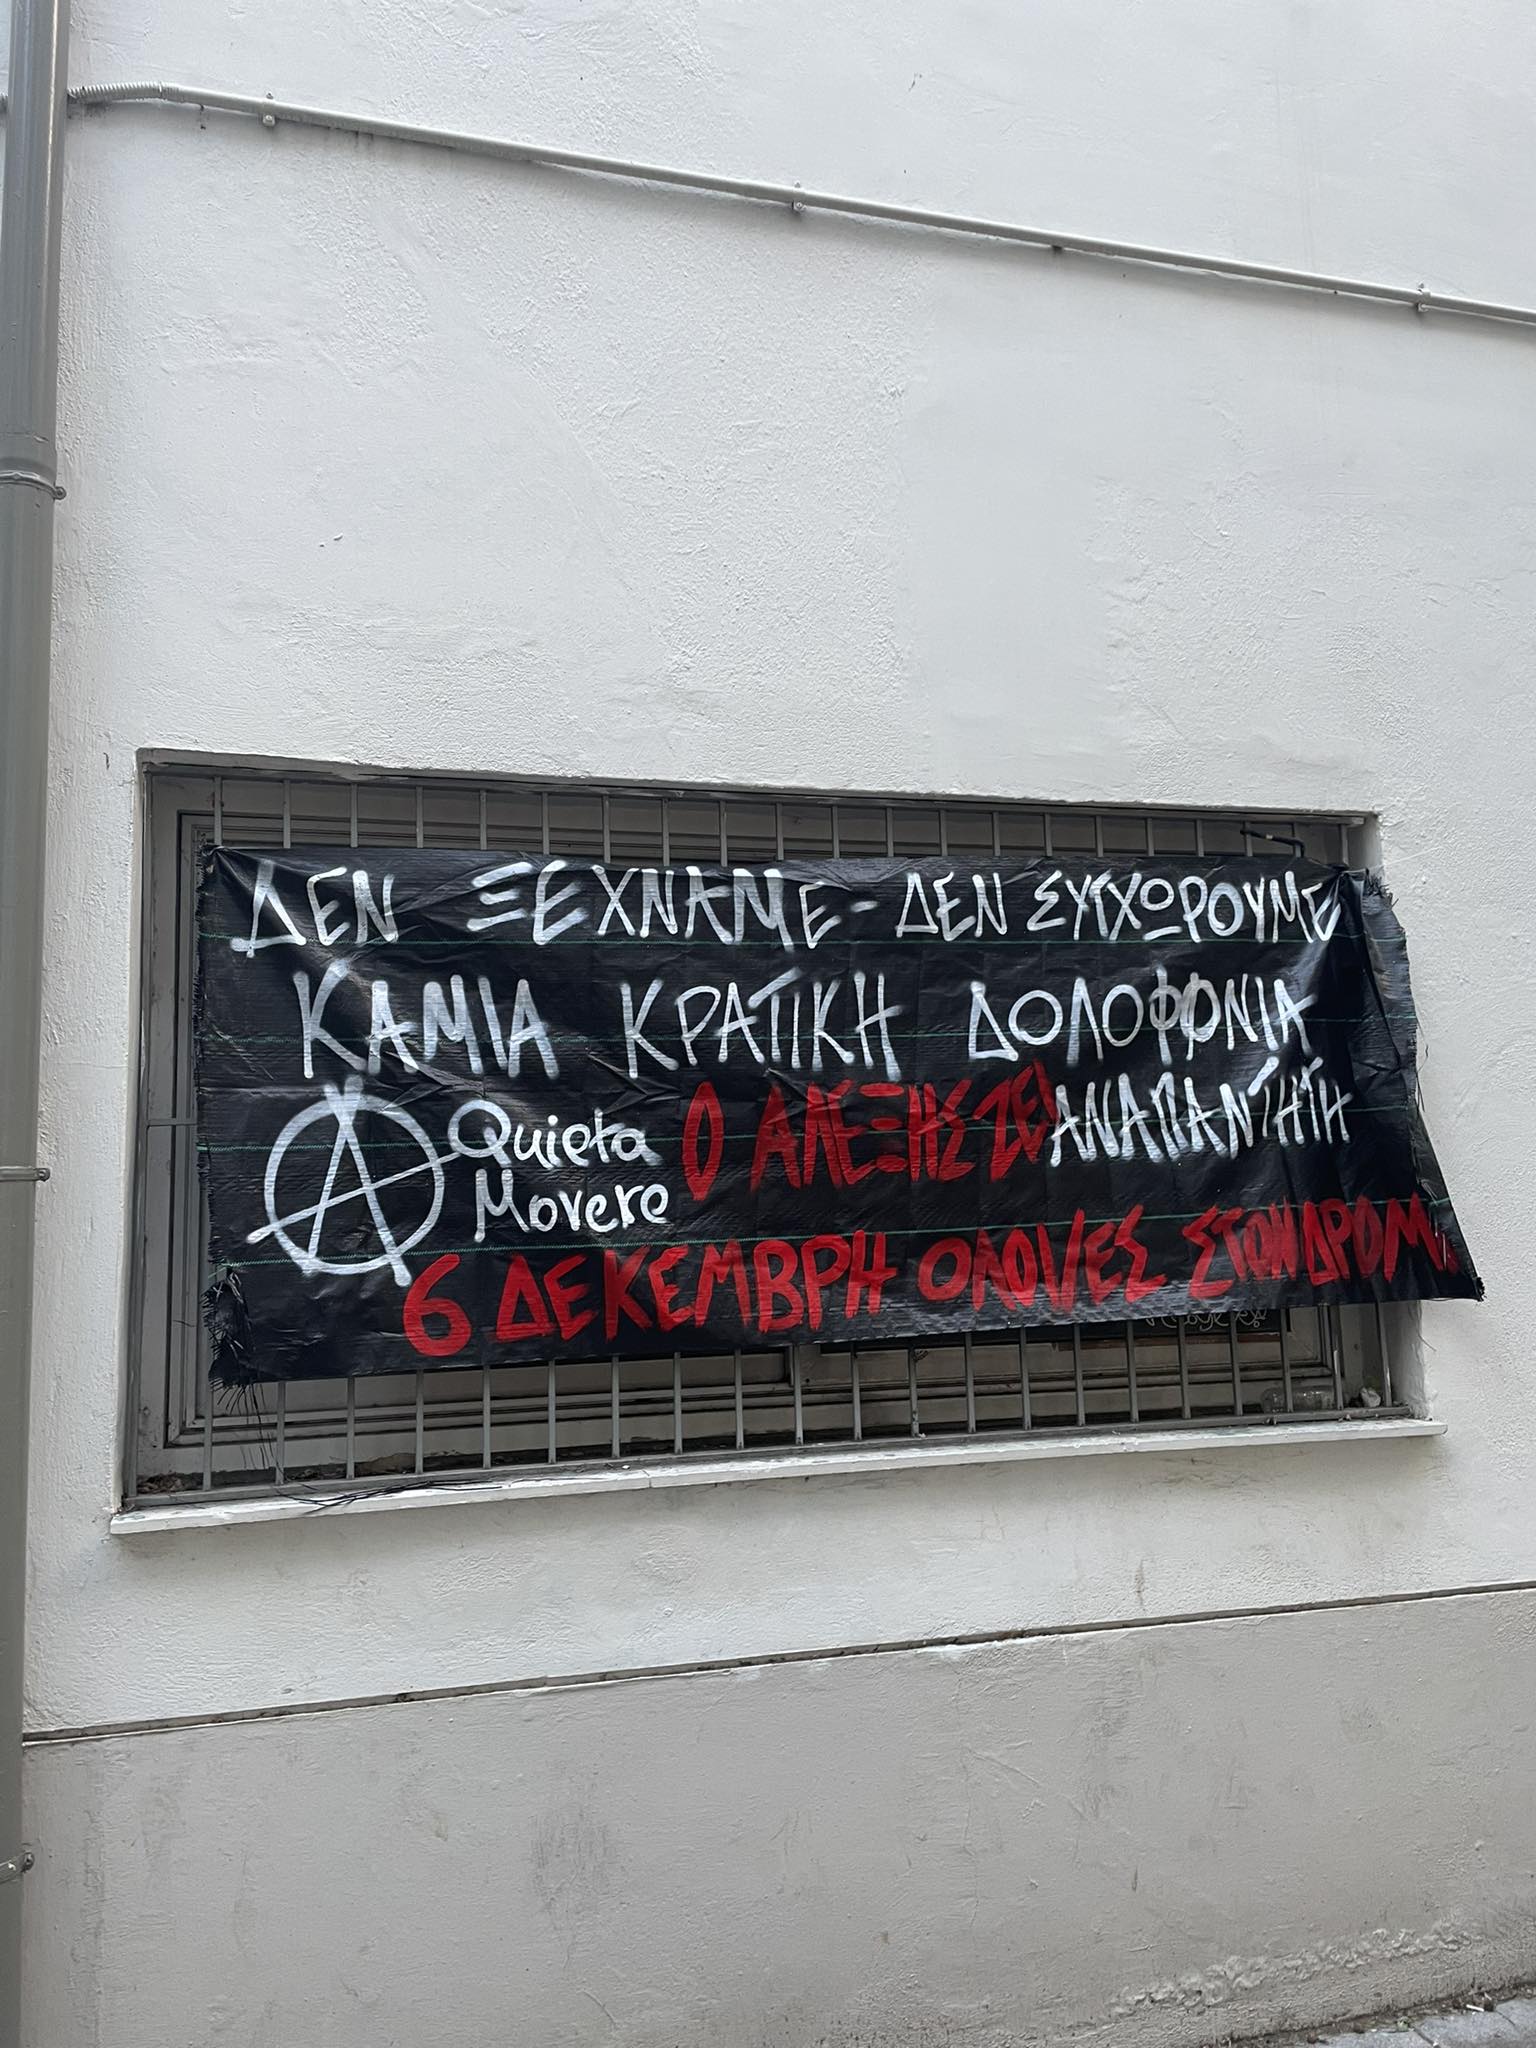 ΔΕΝ ΞΕΧΝΑΜΕ - ΔΕΝ ΣΥΓΧΩΡΟΥΜΕ
ΚΑΜΙΑ ΚΡΑΤΙΚΗ ΔΟΛΟΦΟΝΙΑ
ΑΝΑΠΑΝΤΗΤΗ
Quieta
Movere
Ο ΑΛΕΞΗΣ ΖΕΙ
6 ΔΕΚΕΜΒΡΗ ΟΛΟΙ/ΕΣ ΣΤΟΝ ΔΡΟΜ